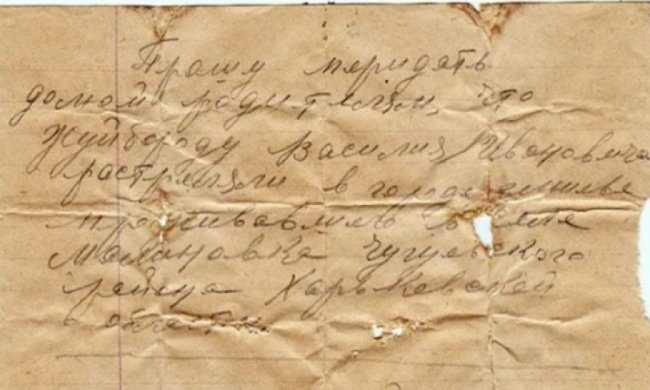 Прашу перидать
домой родителям что
Жуйбороду Василия Ивановича
растреляли в городе
проживавшего в селе
Малиновка Чугуевского
района Харьковской
области